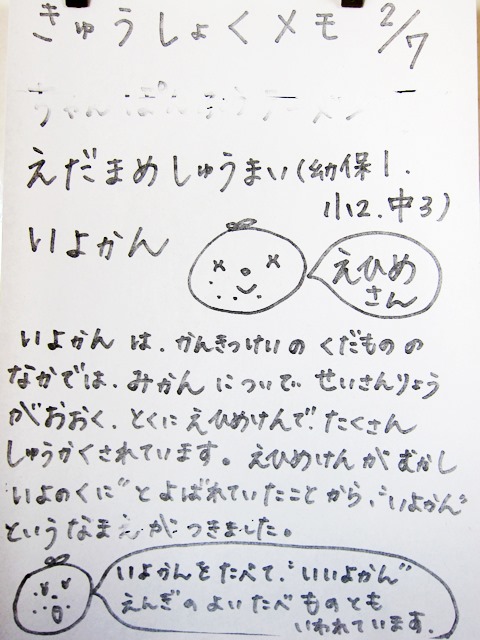 きゅうしょくメモ 2/7
えだまめしゅうまい(幼保1.
小2.中3)
いよかん
えひめ
さん
いよかん は、かんきつけいの くだものの
なかでは、みかん についで せいさんりょう
がおおく、とくに えひめけんで たくさん
しゅうかくされています。えひめけん が むかし
"いよのくに"とよばれていたことから、"いよかん"
という なまえ が つきました。
いよかんをたべて、"いいよかん"
えんぎ の よい たべ ものとも
いわれています。